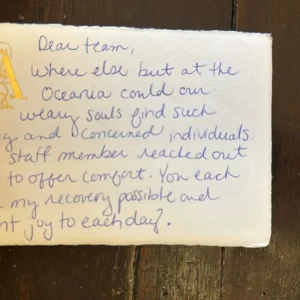 A
Dear team,
Where else but at the
Oceania could our
weary souls find such
and concerned individuals.
staff member reached out
to offer comfort. You each
my recovery possible and
joy to each day.